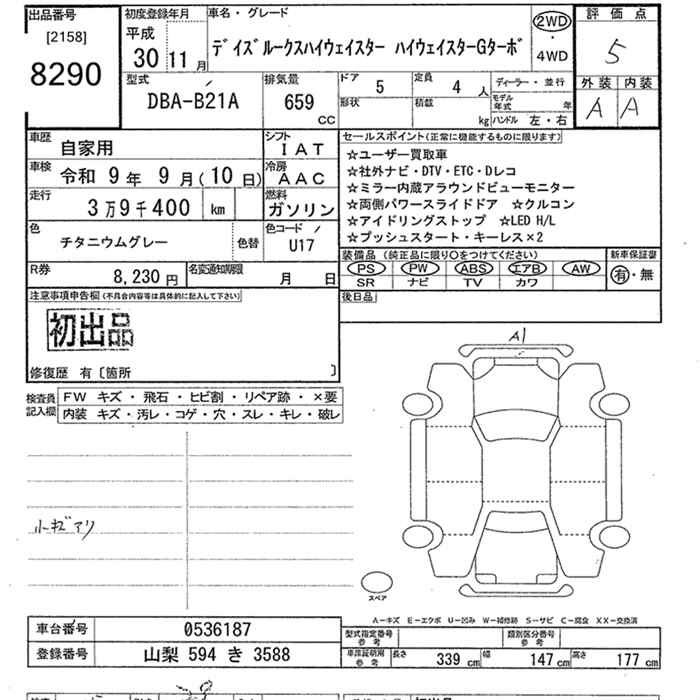 出品番号
[2158]
8290
初度登録年月
平成
30 11 月
車名・グレード
デイズルークスハイウェイスター ハイウェイスターGターボ
2WD
・
4WD
評価点
5
外装 内装
A A
型式
DBA-B21A
排気量
659
CC
ドア
5
定員
4 人
形状
積載
kg
ディーラー・並行
モデル年式 年
ハンドル 左・右
車歴
自家用
シフト
IAT
車検
令和 9 年 9 月(10 日)
冷房
AAC
走行
3 万 9 千 400 km
燃料
ガソリン
色
チタニウムグレー
色替
色コード
U17
R券
8,230 円
名変通知期限
月 日
セールスポイント(正常に機能するものに限ります)
☆ユーザー買取車
☆社外ナビ・DTV・ETC・Dレコ
☆ミラー内蔵アラウンドビューモニター
☆両側パワースライドドア ☆クルコン
☆アイドリングストップ ☆LED H/L
☆プッシュスタート・キーレス×2
装備品(純正品に限り○をつけてください)
PS PW ABS エアB AW
SR ナビ TV カワ
新車保証書
有・無
後日品
注意事項申告欄(不具合内容等は具体的に記入して下さい)
初出品
修復歴 有〔箇所 〕
検査員記入欄
FW キズ・飛石・ヒビ割・リペア跡・×要
内装 キズ・汚レ・コゲ・穴・スレ・キレ・破レ
小キズアリ
A1
スペア
A-キズ E-エクボ U-凹み W-補修跡 S-サビ C-腐食 XX-交換済
車台番号
0536187
登録番号
山梨 594 き 3588
型式指定番号
参考
類別区分番号
参考
車庫証明用
参考
長さ 339 cm
幅 147 cm
高さ 177 cm